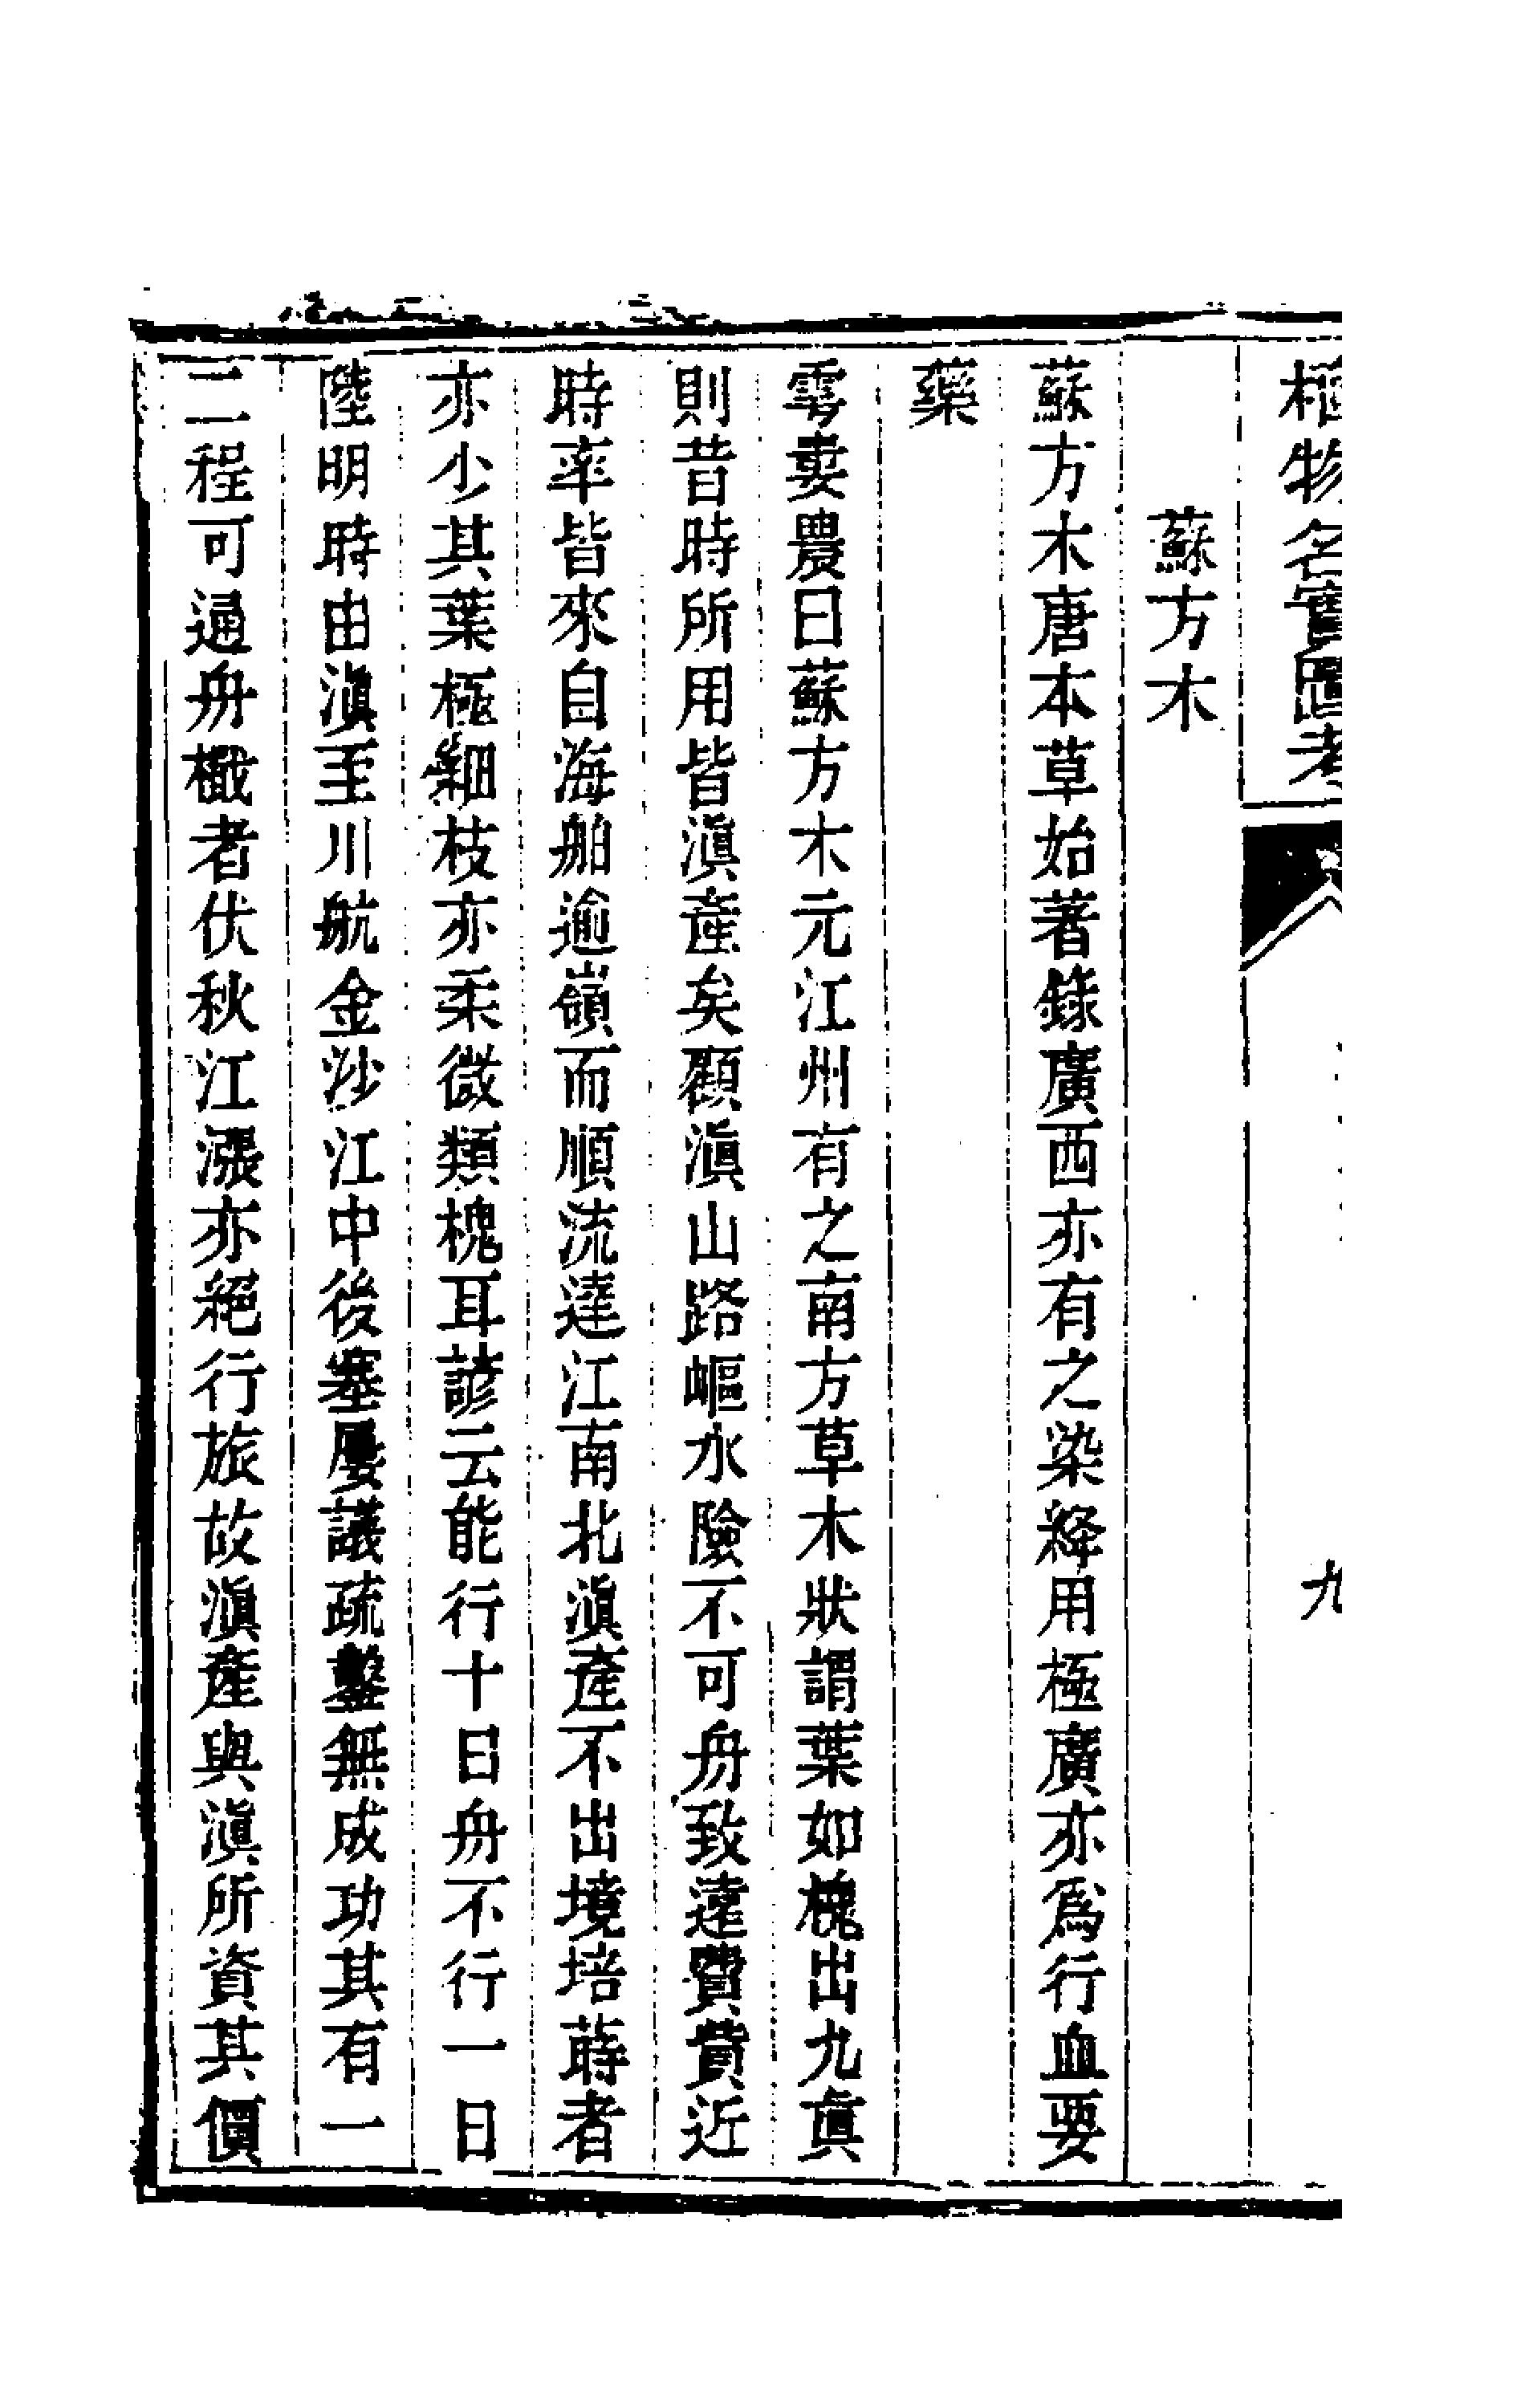 植物名實圖考
九
蘇方木
蘇方木唐本草始著錄廣西亦有之染絳用極廣亦為行血要
藥
雩婁農曰蘇方木元江州有之南方草木狀謂葉如槐出九真
則昔時所用皆滇產矣顧滇山路嶇水險不可舟致遠費費近
時率皆來自海舶逾嶺而順流達江南北滇產不出境培蒔者
亦少其葉極細枝亦柔微類槐耳諺云能行十日舟不行一日
陸明時由滇至川航金沙江中後塞屢議疏鑿無成功其有一
二程可通舟檝者伏秋江漲亦絕行旅故滇產與滇所資其價